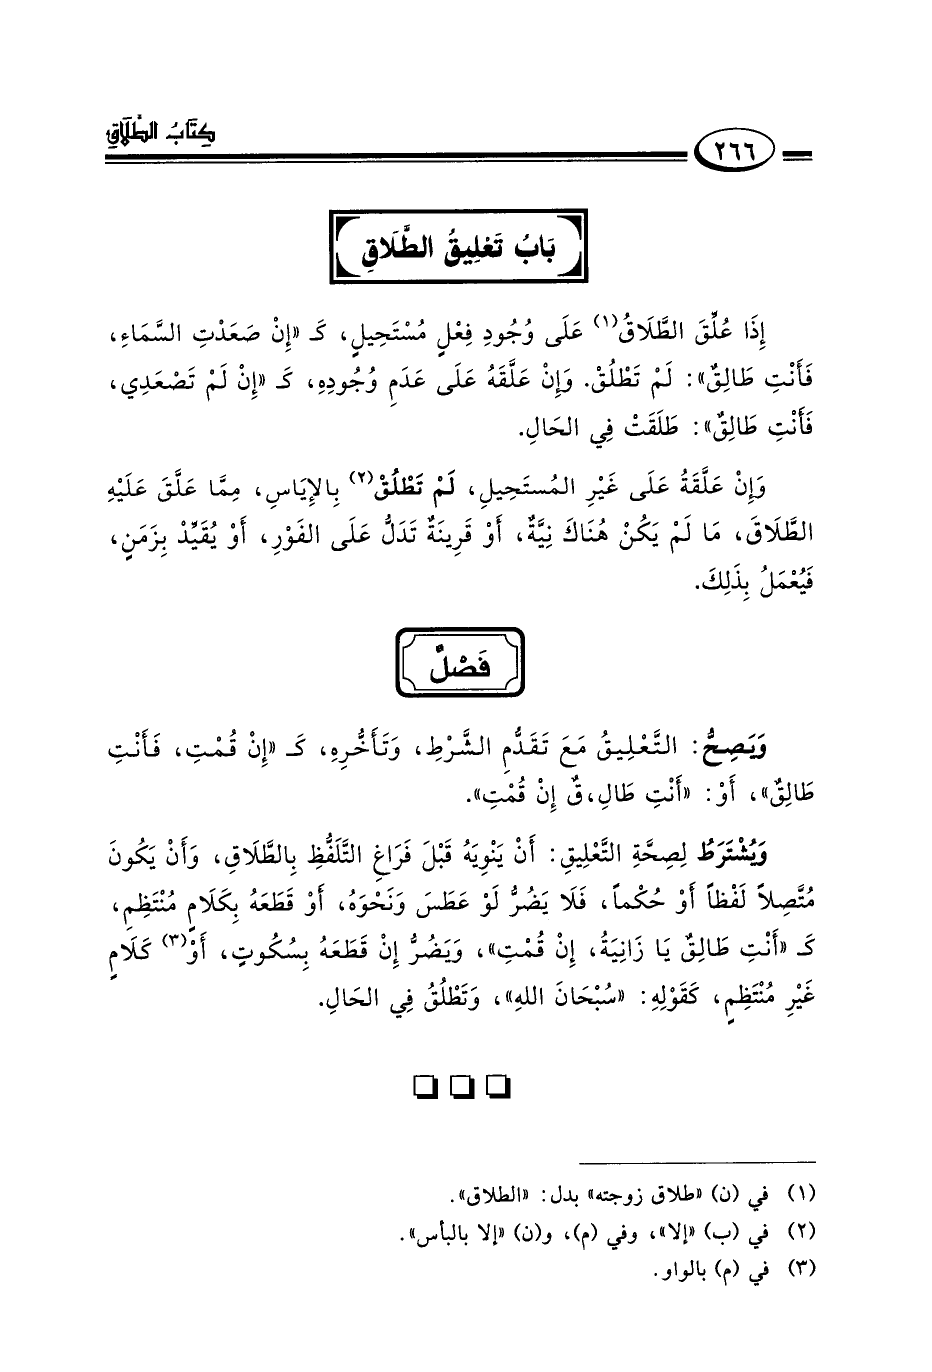 كِتَابُ الطَّلَاقِ
٢٦٦
بَابُ تَعْلِيقُ الطَّلَاقِ
إِذَا عُلِّقَ الطَّلَاقُ(١) عَلَى وُجُودِ فِعْلٍ مُسْتَحِيلٍ، كَـ «إِنْ صَعَدْتِ السَّمَاءِ،
فَأَنْتِ طَالِقٌ»: لَمْ تَطْلُقْ. وَإِنْ عَلَّقَهُ عَلَى عَدَمِ وُجُودِهِ، كَـ «إِنْ لَمْ تَصْعَدِي،
فَأَنْتِ طَالِقٌ»: طَلَقَتْ فِي الحَالِ.
وَإِنْ عَلَّقَهُ عَلَى غَيْرِ المُستَحِيلِ، لَمْ تَطْلُقْ(٢) بِالإِيَاسِ، مِمَّا عَلَّقَ عَلَيْهِ
الطَّلَاقَ، مَا لَمْ يَكُنْ هُنَاكَ نِيَّةٌ، أَوْ قَرِينَةٌ تَدَلُّ عَلَى الفَوْرِ، أَوْ يُقَيِّدْ بِزَمَنٍ،
فَيُعْمَلُ بِذَلِكَ.
فَصْلٌ
وَيَصِحُّ: التَّعْلِيقُ مَعَ تَقَدُّمِ الشَّرْطِ، وَتَأَخُّرِهِ، كَـ «إِنْ قُمْتِ، فَأَنْتِ
طَالِقٌ»، أَوْ: «أَنْتِ طَالِ،قٌ إِنْ قُمْتِ».
وَيُشْتَرَطُ لِصِحَّةِ التَّعْلِيقِ: أَنْ يَنْوِيَهُ قَبْلَ فَرَاغِ التَّلَفُّظِ بِالطَّلَاقِ، وَأَنْ يَكُونَ
مُتَّصِلاً لَفْظاً أَوْ حُكْماً، فَلَا يَضُرُّ لَوْ عَطَسَ وَنَحْوَهُ، أَوْ قَطَعَهُ بِكَلَامٍ مُنْتَظِمٍ،
كَـ «أَنْتِ طَالِقٌ يَا زَانِيَةُ، إِنْ قُمْتِ»، وَيَضُرُّ إِنْ قَطَعَهُ بِسُكُوتٍ، أَوْ(٣) كَلَامٍ
غَيْرِ مُنْتَظِمٍ، كَقَوْلِهِ: «سُبْحَانَ اللهِ»، وَتَطْلُقُ فِي الحَالِ.
(١) في (ن) «طلاق زوجته» بدل: «الطلاق».
(٢) في (ب) «إلا»، وفي (م)، و(ن) «إلا باليأس».
(٣) في (م) بالواو.